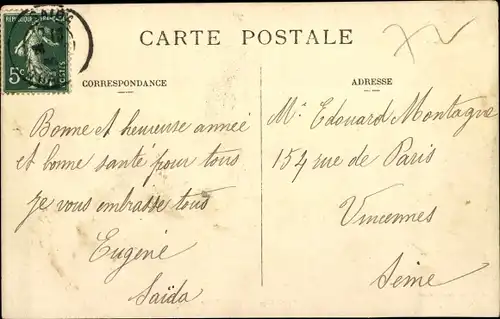 RÉPUBLIQUE FRANÇAISE
5c POSTES
CARTE POSTALE
CORRESPONDANCE
Bonne et heureuse année
et bonne santé pour tous
je vous embrasse tous
Eugène
Saïda
ADRESSE
Mr Edouard Montagne
154 rue de Paris
Vincennes
Seine